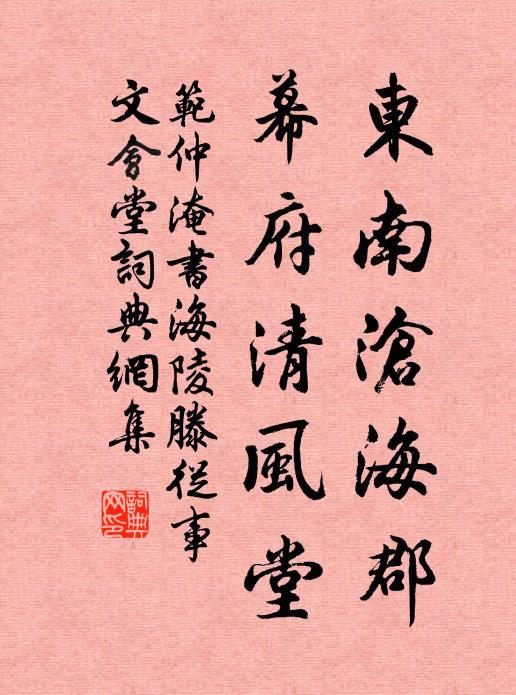 東南滄海郡
幕府清風堂
範仲淹書海陵滕從事
文會堂詞典網集
詞典
网印